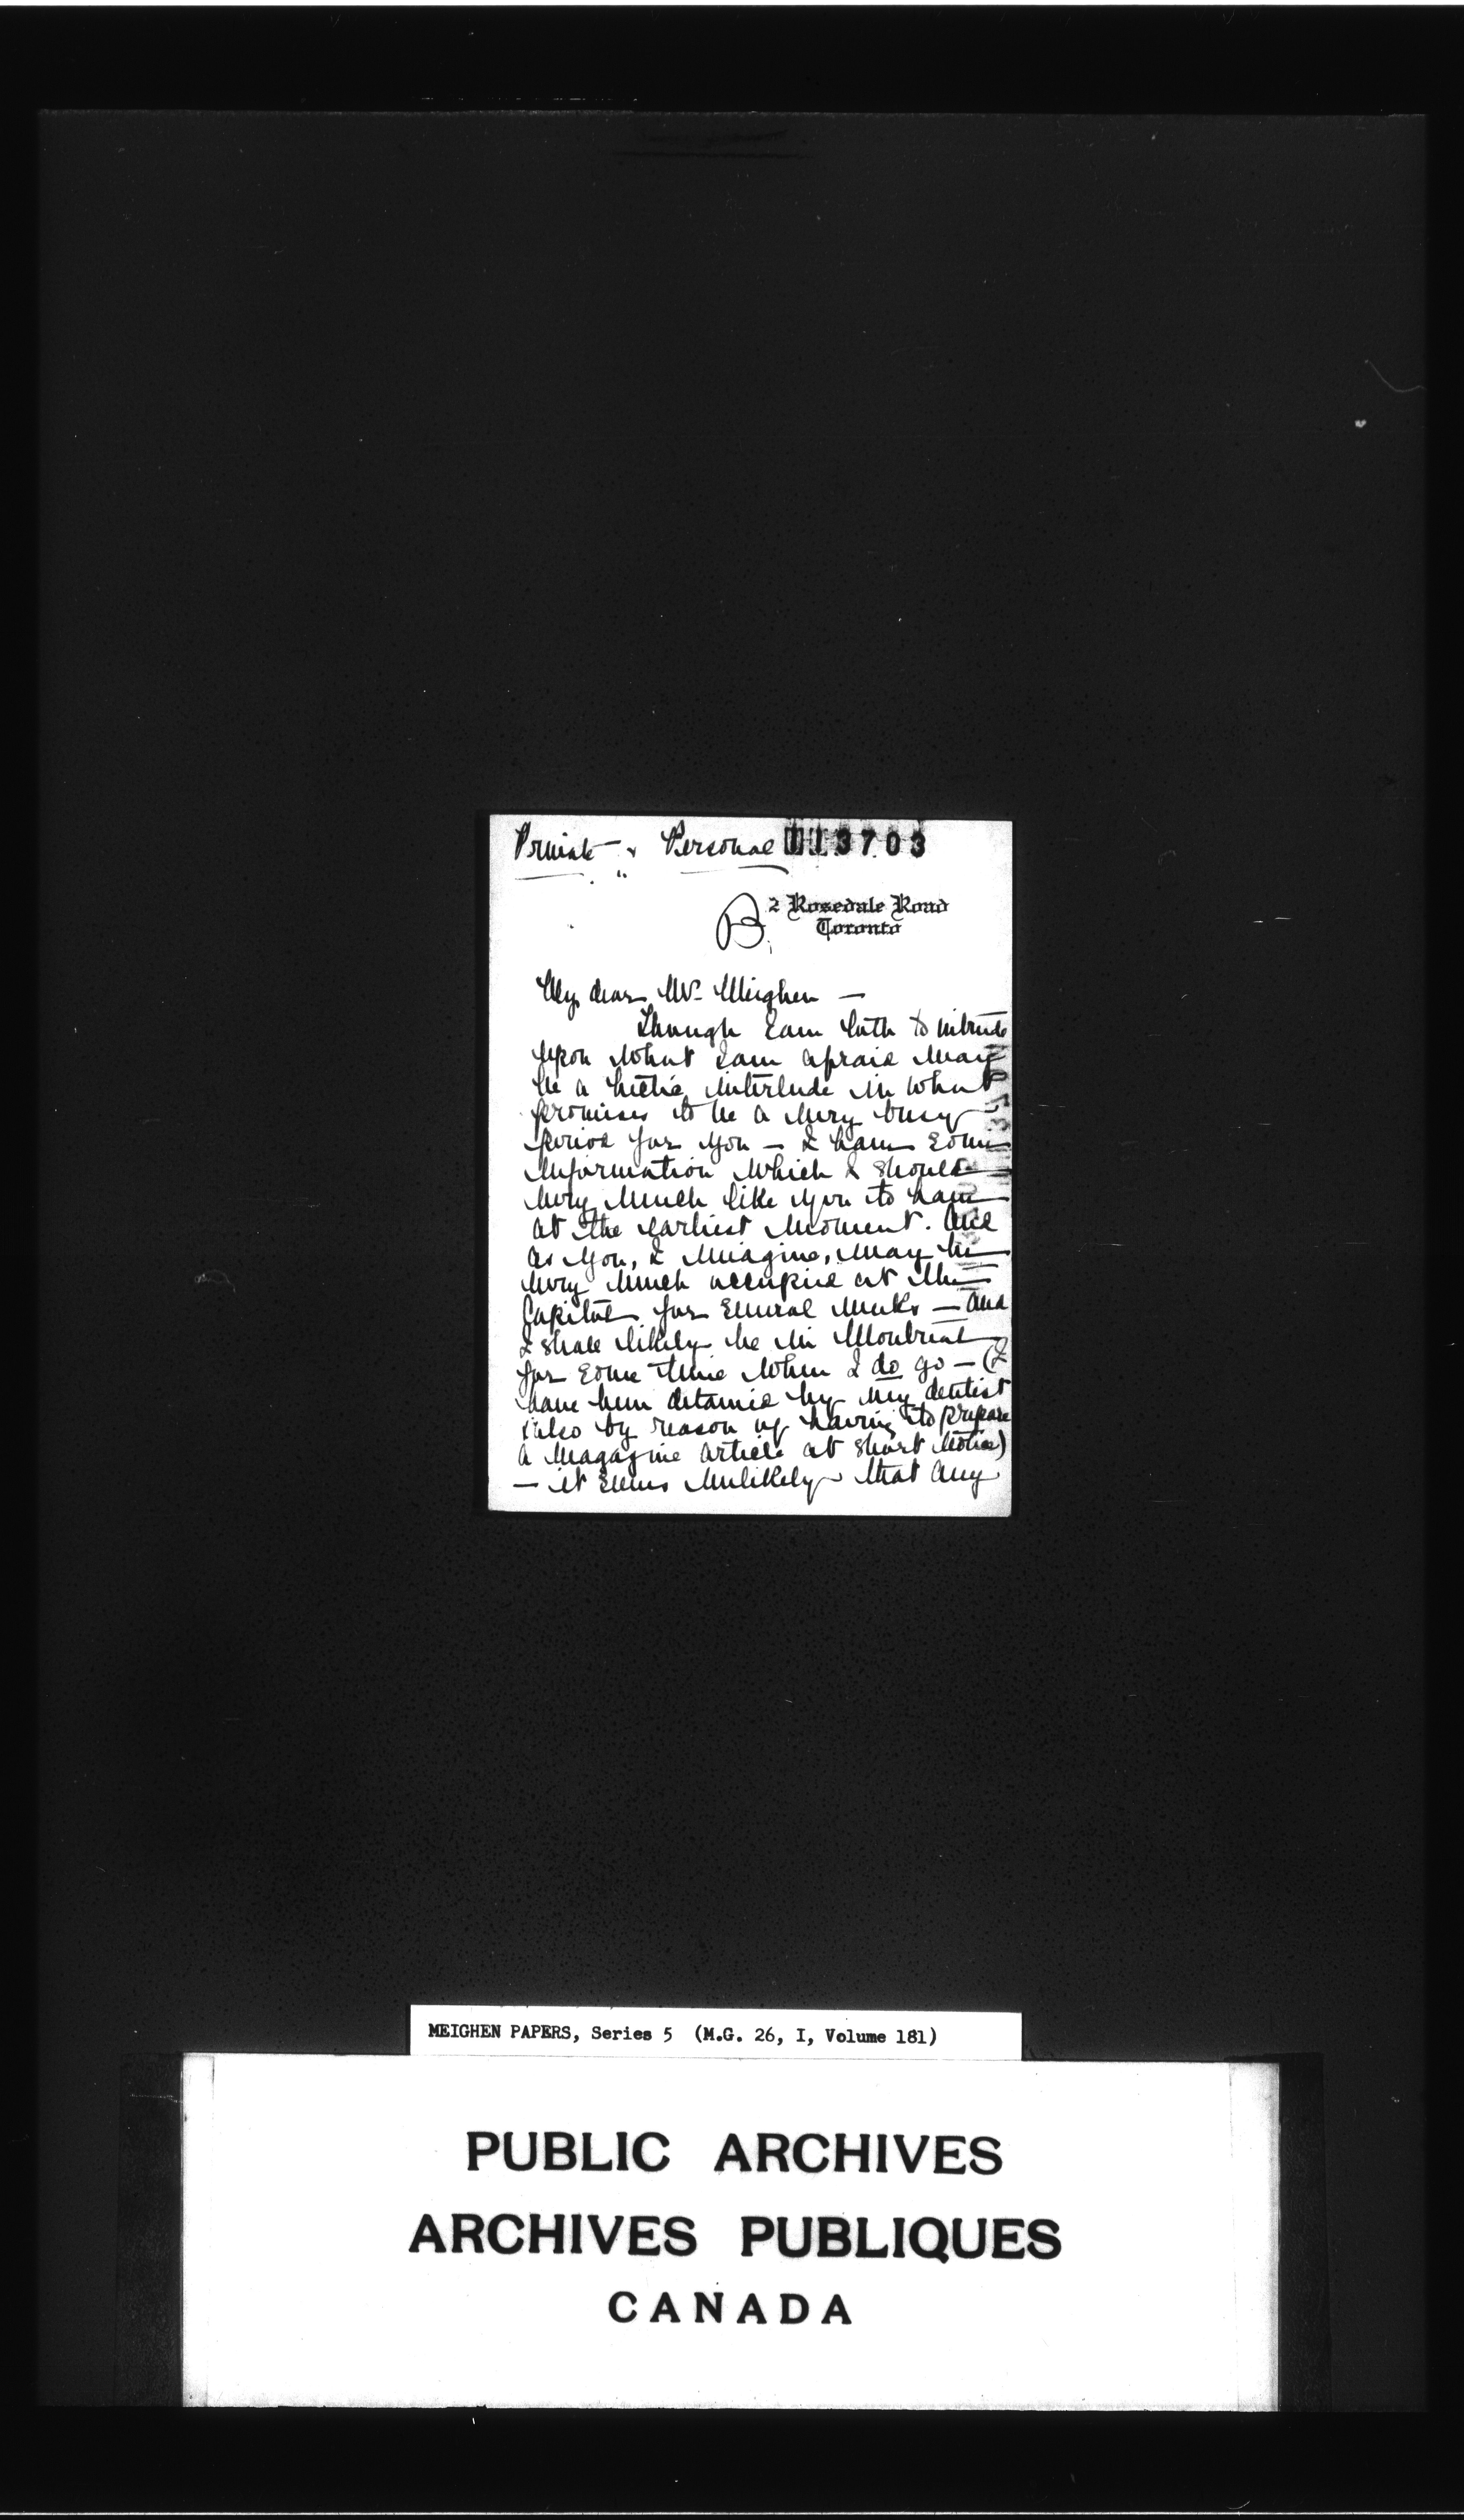 Private & Personal 113703
B. 2 Rosedale Road
Toronto
My dear Mr. Meighen —
Though I am loth to intrude
upon what I am afraid may
be a hectic interlude in what
promises to be a very busy
period for you — I have some
information which I should
very much like you to have
at the earliest moment. And
as you, I imagine, may be
very much occupied at the
Capital for several weeks — and
I shall likely be in Montreal
for some time when I do go — (I
have been detained by my dentist
also by reason of having to prepare
a magazine article at short notice)
— it seems unlikely that any
MEIGHEN PAPERS, Series 5 (M.G. 26, I, Volume 181)
PUBLIC ARCHIVES
ARCHIVES PUBLIQUES
CANADA